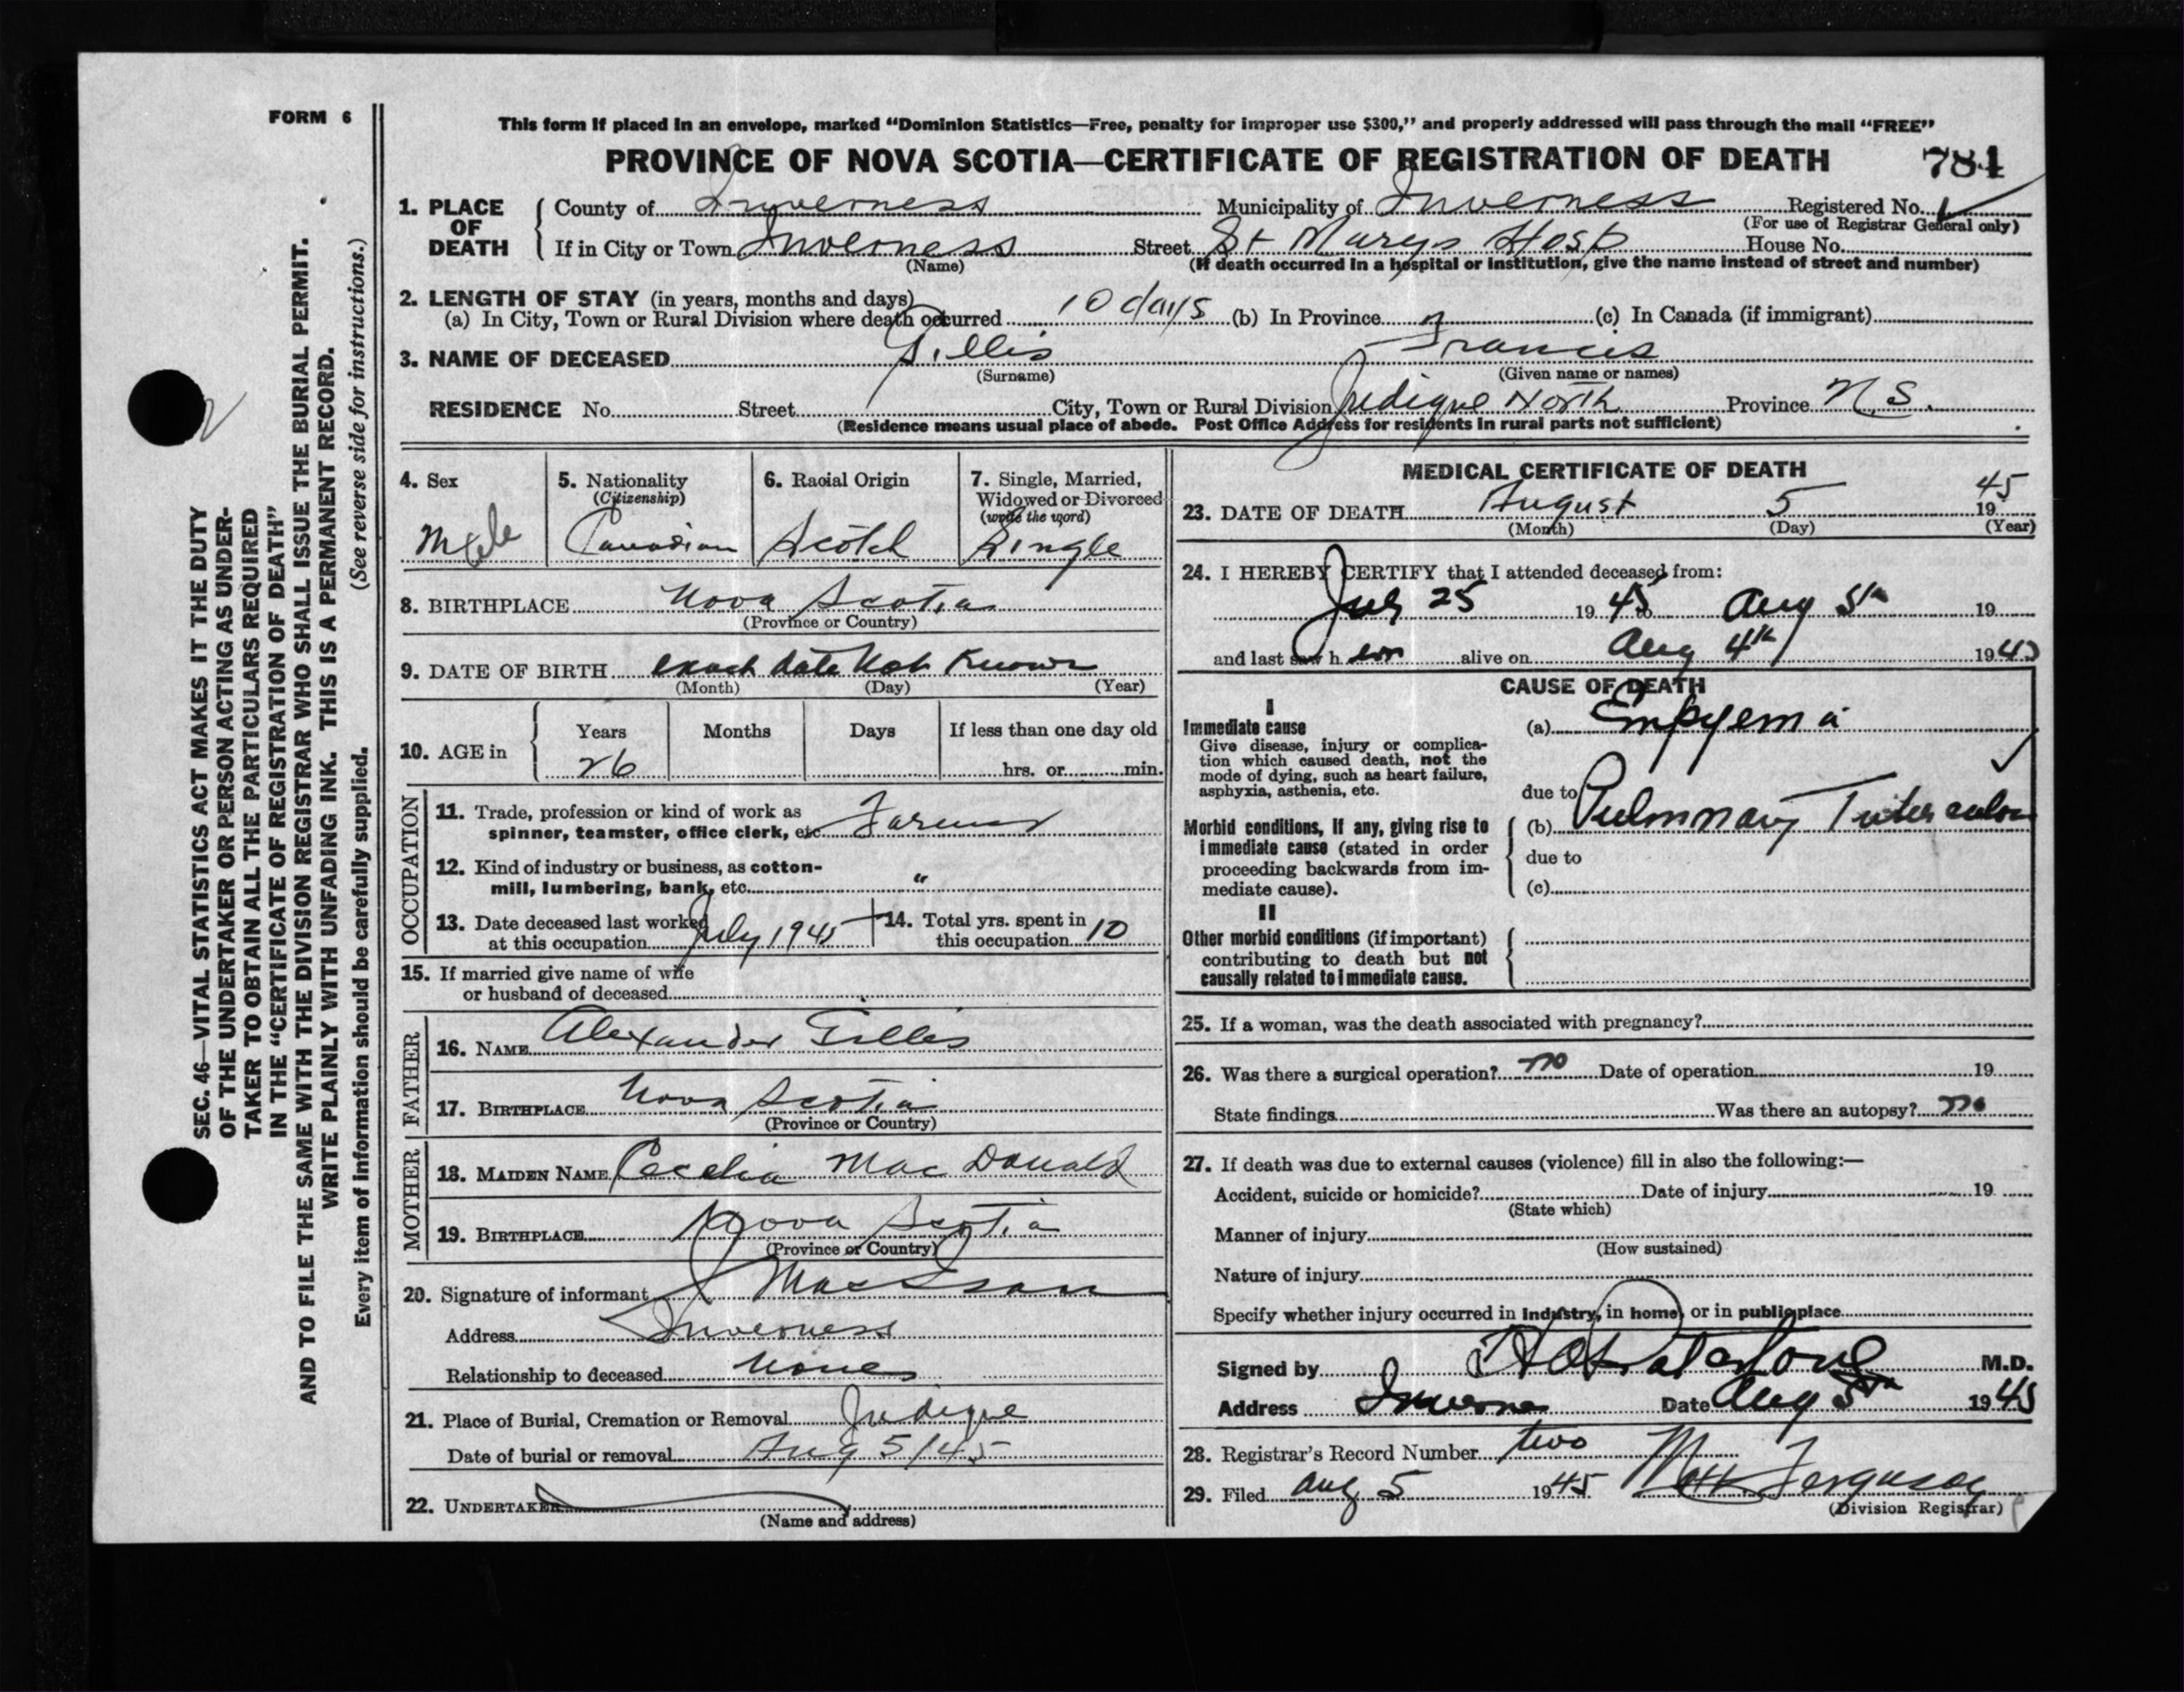 FORM 6
This form if placed in an envelope, marked "Dominion Statistics—Free, penalty for improper use $300," and properly addressed will pass through the mail "FREE"
PROVINCE OF NOVA SCOTIA—CERTIFICATE OF REGISTRATION OF DEATH 784
1. PLACE OF DEATH
County of Inverness Municipality of Inverness Registered No.
(For use of Registrar General only)
If in City or Town Inverness Street St Marys Hosp House No.
(Name) (If death occurred in a hospital or institution, give the name instead of street and number)
2. LENGTH OF STAY (in years, months and days)
(a) In City, Town or Rural Division where death occurred 10 days (b) In Province (c) In Canada (if immigrant)
3. NAME OF DECEASED Gillis Francis
(Surname) (Given name or names)
RESIDENCE No. Street City, Town or Rural Division Judique North Province N.S.
(Residence means usual place of abode. Post Office Address for residents in rural parts not sufficient)
4. Sex
Male
5. Nationality
(Citizenship)
Canadian
6. Racial Origin
Scotch
7. Single, Married,
Widowed or Divorced
(write the word)
Single
8. BIRTHPLACE Nova Scotia
(Province or Country)
9. DATE OF BIRTH exact date Not Known
(Month) (Day) (Year)
10. AGE in
Years Months Days If less than one day old
26 hrs. or min.
OCCUPATION
11. Trade, profession or kind of work as
spinner, teamster, office clerk, etc. Farmer
12. Kind of industry or business, as cotton-
mill, lumbering, bank, etc. "
13. Date deceased last worked
at this occupation July 1945
14. Total yrs. spent in
this occupation 10
15. If married give name of wife
or husband of deceased
FATHER
16. NAME Alexander Gillis
17. BIRTHPLACE Nova Scotia
(Province or Country)
MOTHER
18. MAIDEN NAME Cecelia MacDonald
19. BIRTHPLACE Nova Scotia
(Province or Country)
20. Signature of informant J MacIsaac
Address Inverness
Relationship to deceased None
21. Place of Burial, Cremation or Removal Judique
Date of burial or removal Aug 5/45
22. UNDERTAKER
(Name and address)
MEDICAL CERTIFICATE OF DEATH
23. DATE OF DEATH August 5 1945
(Month) (Day) (Year)
24. I HEREBY CERTIFY that I attended deceased from:
July 25 1945 to Aug 5th 19
and last saw h im alive on Aug 4th 1945
CAUSE OF DEATH
I
Immediate cause
Give disease, injury or complica-
tion which caused death, not the
mode of dying, such as heart failure,
asphyxia, asthenia, etc.
(a) Empyema
due to
Morbid conditions, if any, giving rise to
immediate cause (stated in order
proceeding backwards from im-
mediate cause).
(b) Pulmonary Tuberculosis
due to
(c)
II
Other morbid conditions (if important)
contributing to death but not
causally related to immediate cause.
25. If a woman, was the death associated with pregnancy?
26. Was there a surgical operation? no Date of operation 19
State findings Was there an autopsy? no
27. If death was due to external causes (violence) fill in also the following:—
Accident, suicide or homicide? Date of injury 19
(State which)
Manner of injury
(How sustained)
Nature of injury
Specify whether injury occurred in industry, in home, or in public place
Signed by M.D.
Address Inverness Date Aug 5th 1945
28. Registrar's Record Number two
29. Filed Aug 5 1945 Ferguson
(Division Registrar)
SEC. 46—VITAL STATISTICS ACT MAKES IT THE DUTY
OF THE UNDERTAKER OR PERSON ACTING AS UNDER-
TAKER TO OBTAIN ALL THE PARTICULARS REQUIRED
IN THE "CERTIFICATE OF REGISTRATION OF DEATH"
AND TO FILE THE SAME WITH THE DIVISION REGISTRAR WHO SHALL ISSUE THE BURIAL PERMIT.
WRITE PLAINLY WITH UNFADING INK. THIS IS A PERMANENT RECORD.
Every item of information should be carefully supplied. (See reverse side for instructions.)